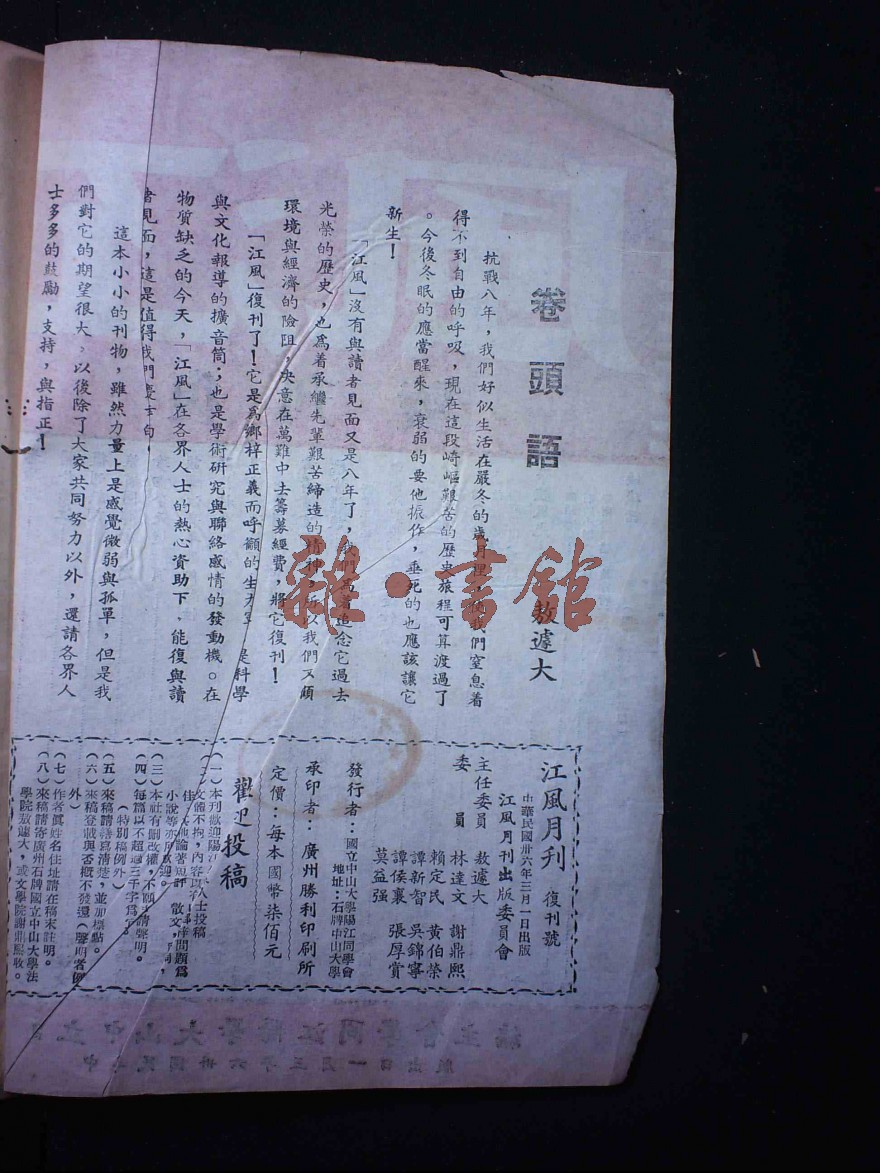 卷頭語
敖遽大
抗戰八年，我們好似生活在嚴冬的歲月裡，使我們窒息着
得不到自由的呼吸，現在這段崎嶇艱苦的歷史旅程可算渡過了
。今後冬眠的應當醒來，衰弱的要他振作，垂死的也應該讓它
新生！
「江風」沒有與讀者見面又是八年了，我們爲着追念它過去
光榮的歷史，也爲着承繼先輩艱苦締造的精神，所以我們又願
環境與經濟的險阻，決意在萬難中去籌募經費，將它復刊！
「江風」復刊了！它是爲鄉梓正義而呼籲的生力軍，是科學
與文化報導的擴音筒；也是學術研究與聯絡感情的發動機。在
物質缺乏的今天，「江風」在各界人士的熱心資助下，能復與讀
者見面，這是值得我們慶幸的，
這本小小的刊物，雖然力量上是感覺微弱與孤單，但是我
們對它的期望很大，以後除了大家共同努力以外，還請各界人
士多多的鼓勵，支持，與指正！
江風月刊 復刊號
中華民國卅六年三月一日出版
江風月刊出版委員會
主任委員 敖遽大 謝鼎熙
委員 林達文 黃伯榮
賴定民 吳錦寧
譚新智 張厚賞
譚侯襄
莫益强
發行者：國立中山大學陽江同學會
地址：石牌中山大學
承印者：廣州勝利印刷所
定價：每本國幣柒佰元
歡迎投稿
（一）本刊歡迎陽江人士投稿
文體不拘，內容以
佳，其他論著短評，散文，
小說等亦所歡迎。
（三）本社有刪改權，不願者請聲明。
（四）每篇以不超過三千字爲宜。
（特別稿例外）
（五）來稿請謄寫清楚，並加標點。
（六）來稿登載與否概不發還（聲明者例
外）
（七）作者眞姓名住址請在稿末註明。
（八）來稿請寄廣州石牌國立中山大學法
學院敖遽大，或文學院謝鼎熙收。
雜·書館